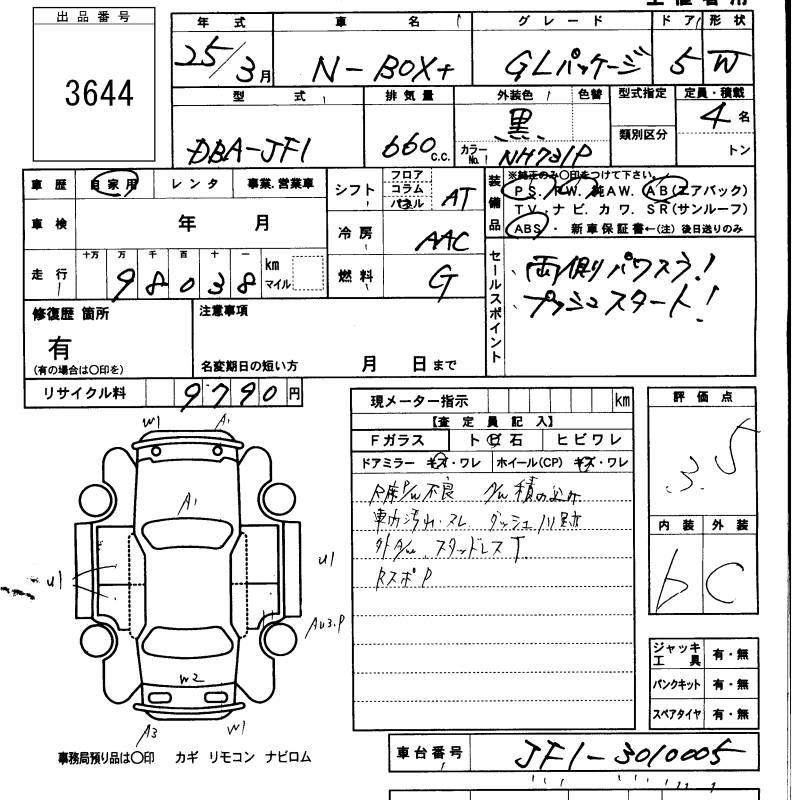 出品番号
3644
年式 車名 グレード ドア 形状
25/3月 N-BOX+ GLパッケージ 5 W
型式 排気量 外装色 色替 型式指定 定員・積載
DBA-JF1 660c.c. 黒 カラーNo. NH731P 類別区分 4名
トン
車歴 自家用 レンタ 事業.営業車
シフト フロア コラム パネル AT
車検 年 月
冷房 AAC
走行 十万 万 千 百 十 一
98038 km マイル
燃料 G
装備品
※純正のみ〇印をつけて下さい。
PS. PW. 純AW. AB(エアバック)
TV. ナビ. カワ. SR(サンルーフ)
ABS・ 新車保証書←(注) 後日送りのみ
セールスポイント
両側パワスラ!
プッシュスタート!
修復歴 箇所
有
(有の場合は〇印を)
注意事項
名変期日の短い方 月 日まで
リサイクル料 9790円
現メーター指示 km
【査定員記入】
Fガラス トビ石 ヒビワレ
ドアミラー キズ・ワレ ホイール(CP) キズ・ワレ
不良 積み込み
車内汚れ・スレ ダッシュ
スタッドレスT
RスポP
評価点
3.5
内装 外装
b C
W1 A1
A1
U1
U1
AU3.P
W2
A3 W1
事務局預り品は〇印 カギ リモコン ナビロム
ジャッキ工具 有・無
パンクキット 有・無
スペアタイヤ 有・無
車台番号 JF1-3010005